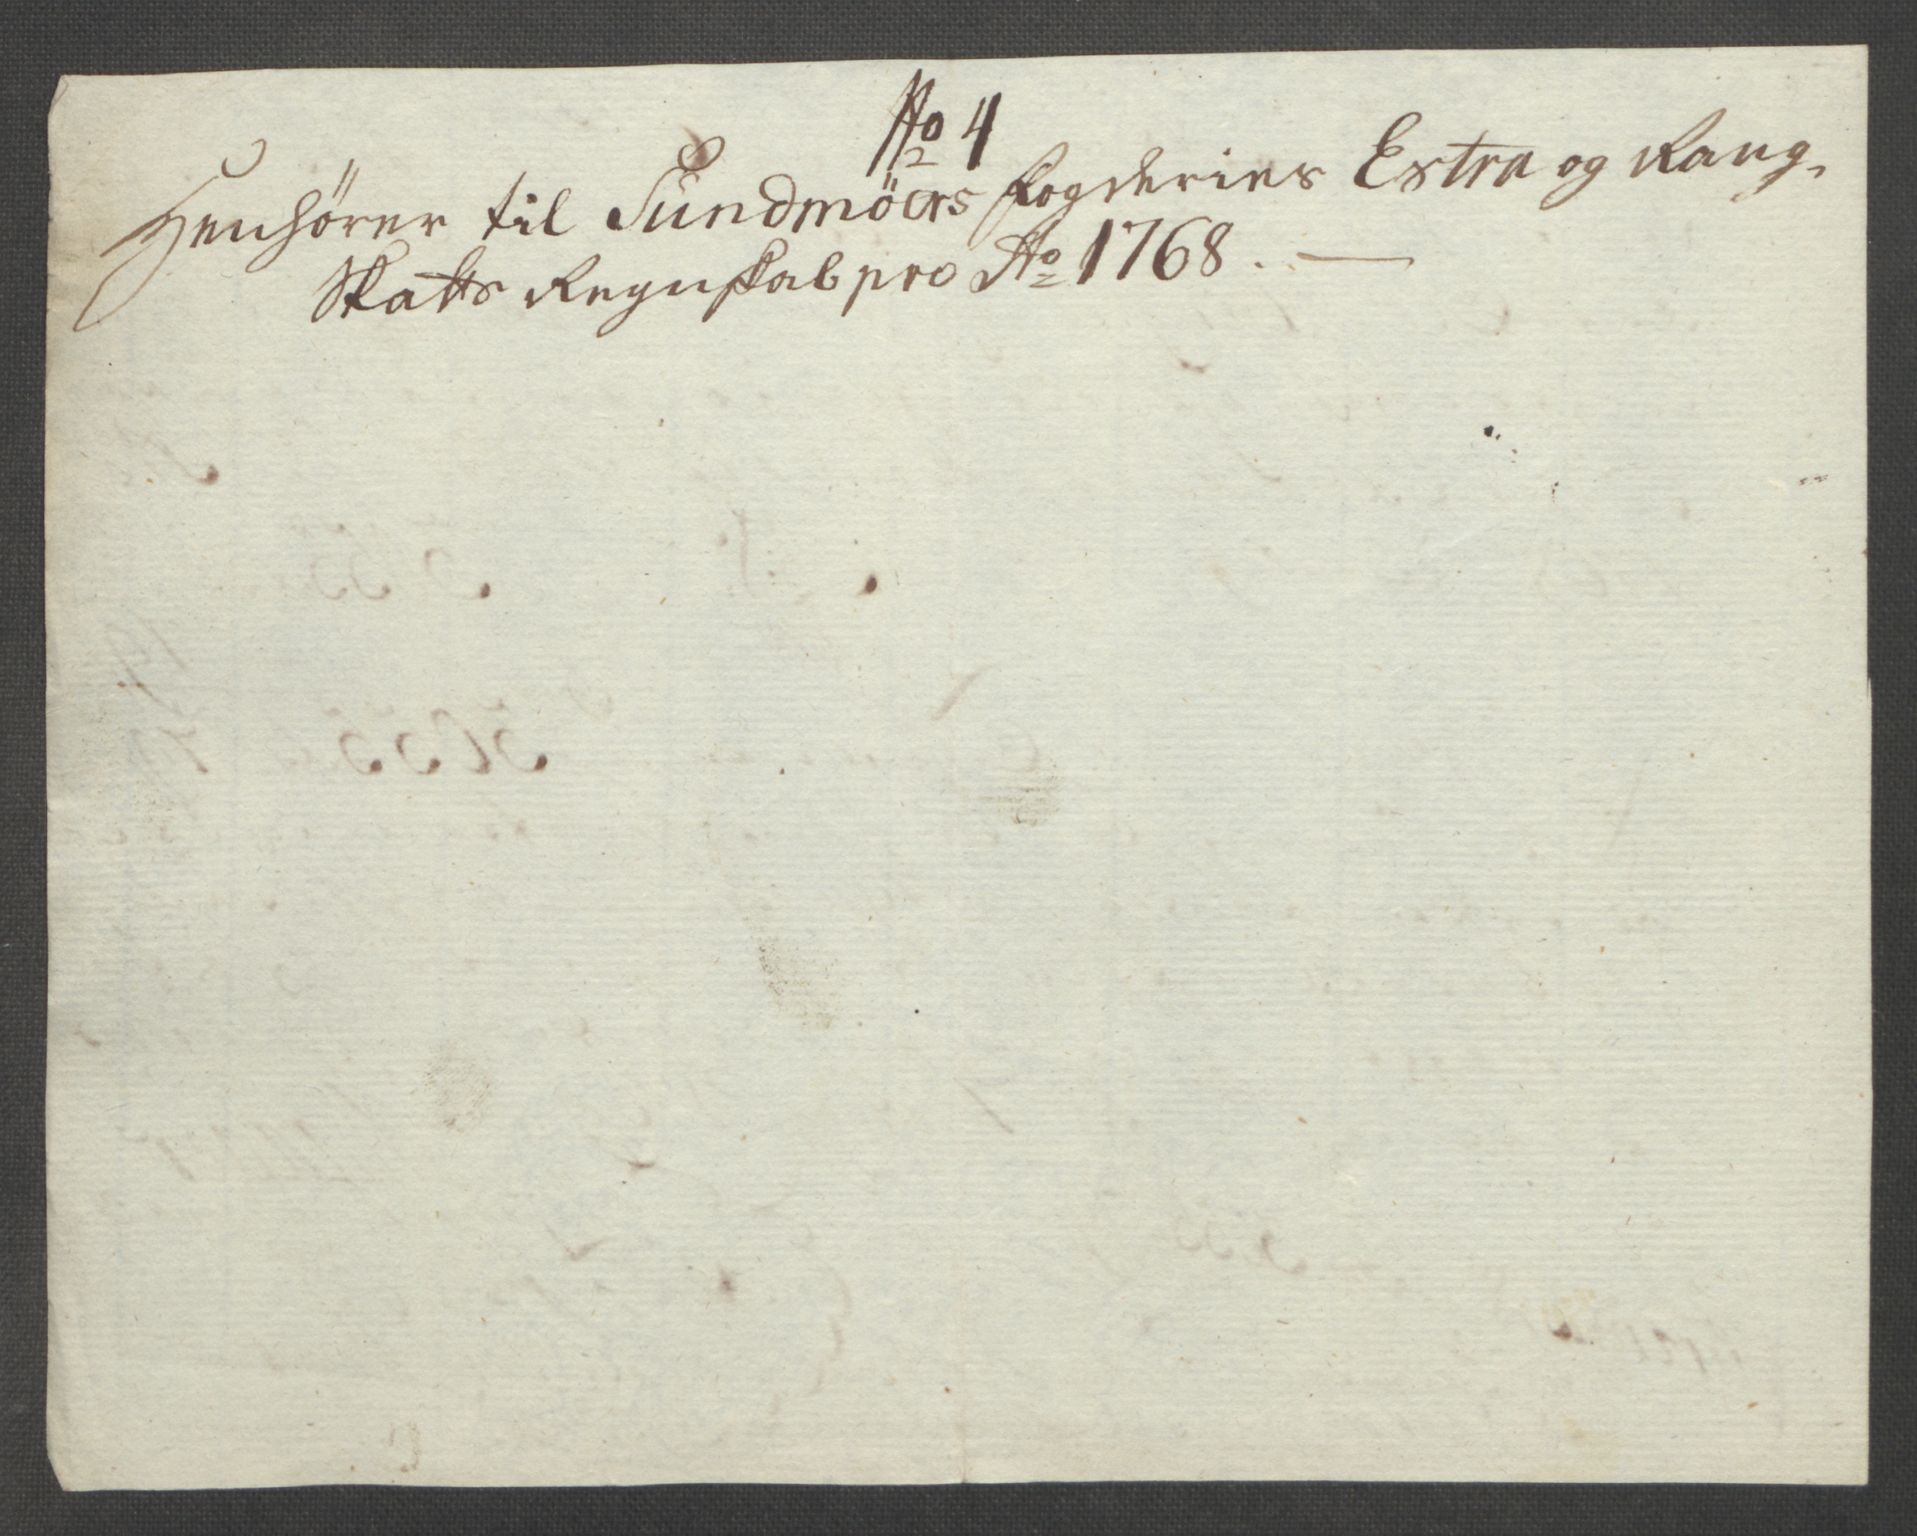 No 4
Henhörer til Sundmöers fogderies Extra og Rang-
Skatts Regnskab pro Ao 1768. —